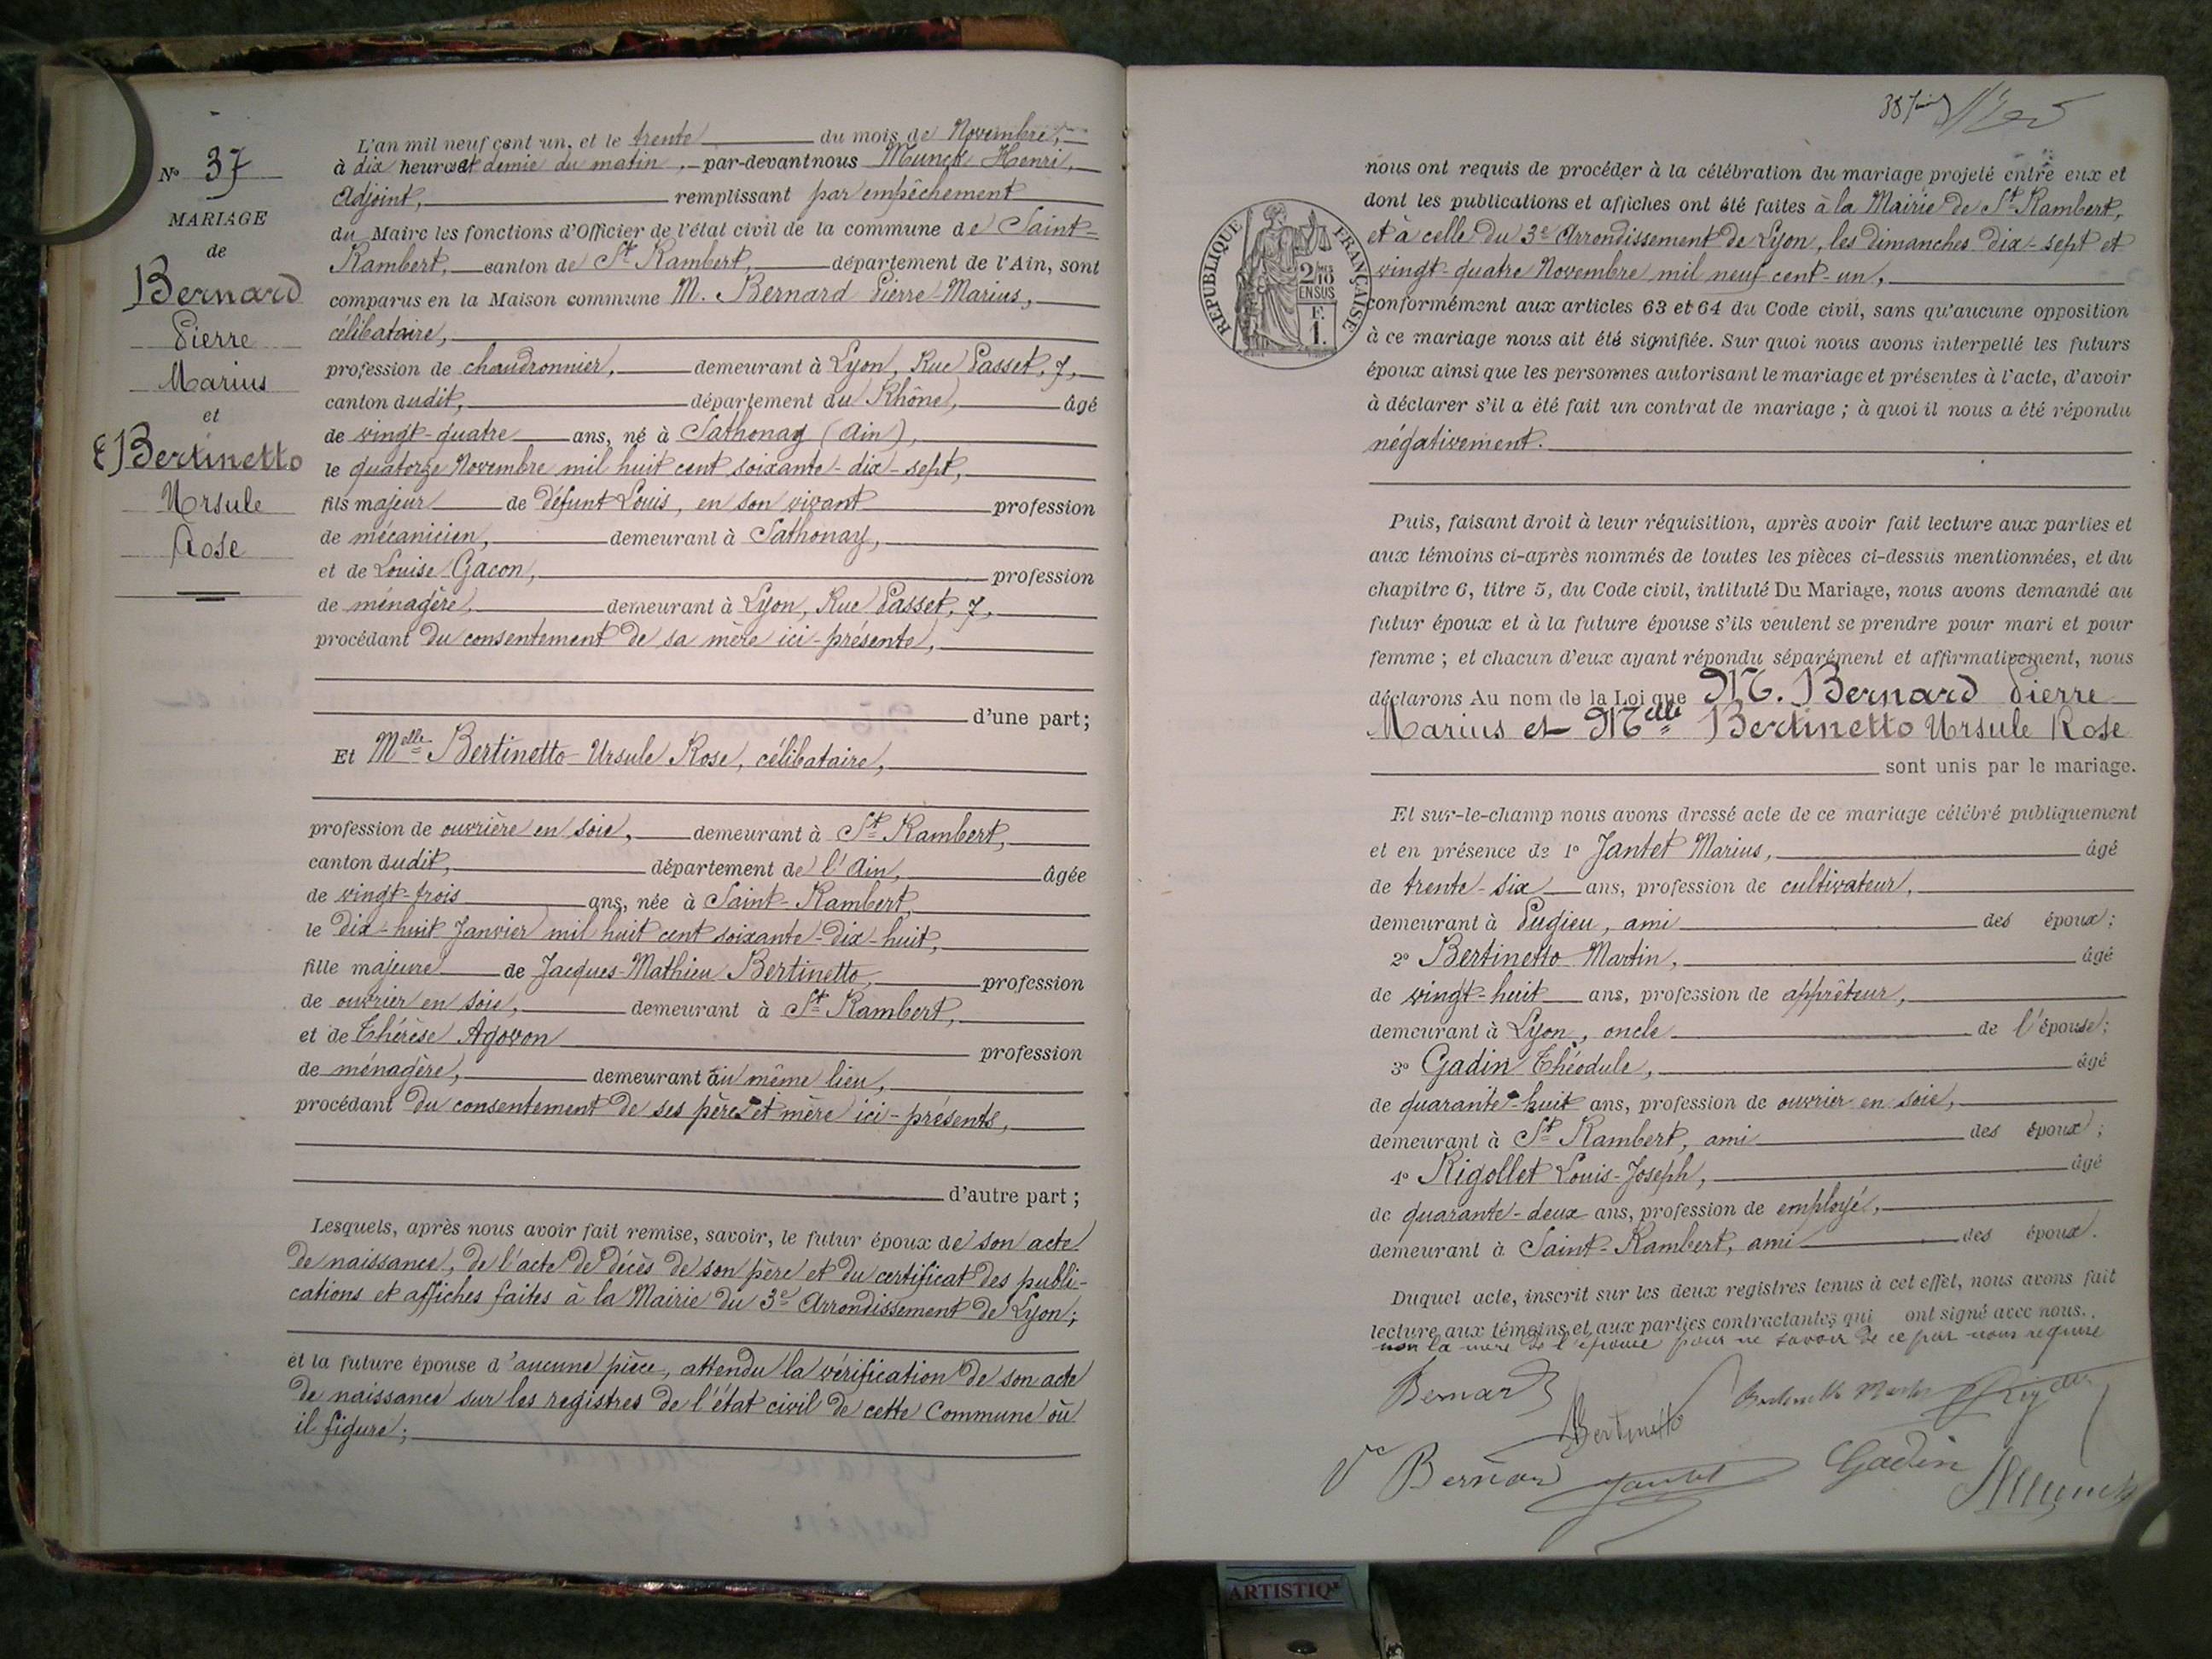 N° 37
MARIAGE
de
Bernard
Pierre
Marius
et
Bertinetto
Ursule
Rose
L'an mil neuf cent un, et le trente du mois de Novembre,
à dix heures et demie du matin, par-devant nous Munck Henri,
Adjoint, remplissant par empêchement
du Maire les fonctions d'Officier de l'état civil de la commune de Saint-
Rambert, canton de St Rambert, département de l'Ain, sont
comparus en la Maison commune M. Bernard Pierre-Marius,
célibataire,
profession de chaudronnier, demeurant à Lyon, Rue Passet, 7,
canton dudit, département du Rhône, âgé
de vingt-quatre ans, né à Sathonay (Ain),
le quatorze Novembre mil huit cent soixante-dix-sept,
fils majeur de défunt Louis, en son vivant profession
de mécanicien, demeurant à Sathonay,
et de Louise Gacon, profession
de ménagère, demeurant à Lyon, Rue Passet, 7,
procédant du consentement de sa mère ici-présente,
d'une part;
Et Melle Bertinetto Ursule Rose, célibataire,
profession de ouvrière en soie, demeurant à St Rambert,
canton dudit, département de l'Ain, âgée
de vingt-trois ans, née à Saint-Rambert,
le dix-huit Janvier mil huit cent soixante-dix-huit,
fille majeure de Jacques-Mathieu Bertinetto, profession
de ouvrier en soie, demeurant à St Rambert,
et de Thérèse Agovon profession
de ménagère, demeurant au même lieu,
procédant du consentement de ses père et mère ici-présents,
d'autre part;
Lesquels, après nous avoir fait remise, savoir, le futur époux de son acte
de naissance, de l'acte de décès de son père et du certificat des publi-
cations et affiches faites à la Mairie du 3e Arrondissement de Lyon;
et la future épouse d'aucune pièce, attendu la vérification de son acte
de naissance sur les registres de l'état civil de cette Commune où
il figure;
nous ont requis de procéder à la célébration du mariage projeté entre eux et
dont les publications et affiches ont été faites à la Mairie de St Rambert,
et à celle du 3e Arrondissement de Lyon, les dimanches dix-sept et
vingt-quatre Novembre mil neuf cent-un,
RÉPUBLIQUE FRANÇAISE
2/10
EN SUS
F.
1.
conformément aux articles 63 et 64 du Code civil, sans qu'aucune opposition
à ce mariage nous ait été signifiée. Sur quoi nous avons interpellé les futurs
époux ainsi que les personnes autorisant le mariage et présentes à l'acte, d'avoir
à déclarer s'il a été fait un contrat de mariage; à quoi il nous a été répondu
négativement.
Puis, faisant droit à leur réquisition, après avoir fait lecture aux parties et
aux témoins ci-après nommés de toutes les pièces ci-dessus mentionnées, et du
chapitre 6, titre 5, du Code civil, intitulé Du Mariage, nous avons demandé au
futur époux et à la future épouse s'ils veulent se prendre pour mari et pour
femme; et chacun d'eux ayant répondu séparément et affirmativement, nous
déclarons Au nom de la Loi que M. Bernard Pierre
Marius et Melle Bertinetto Ursule Rose
sont unis par le mariage.
Et sur-le-champ nous avons dressé acte de ce mariage célébré publiquement
et en présence de 1° Jantet Marius, âgé
de trente-six ans, profession de cultivateur,
demeurant à Pugieu, ami des époux;
2° Bertinetto Martin, âgé
de vingt-huit ans, profession de apprêteur,
demeurant à Lyon, oncle de l'épouse;
3° Gadin Théodule, âgé
de quarante-huit ans, profession de ouvrier en soie,
demeurant à St Rambert, ami des époux;
4° Rigollet Louis-Joseph, âgé
de quarante-deux ans, profession de employé,
demeurant à Saint-Rambert, ami des époux.
Duquel acte, inscrit sur les deux registres tenus à cet effet, nous avons fait
lecture aux témoins et aux parties contractantes qui ont signé avec nous.
non la mère de l'épouse pour ne savoir de ce par nous requise
Bernard
Bertinetto
Ve Bernard
Jantet
Gadin
Munck
ARTISTIQ